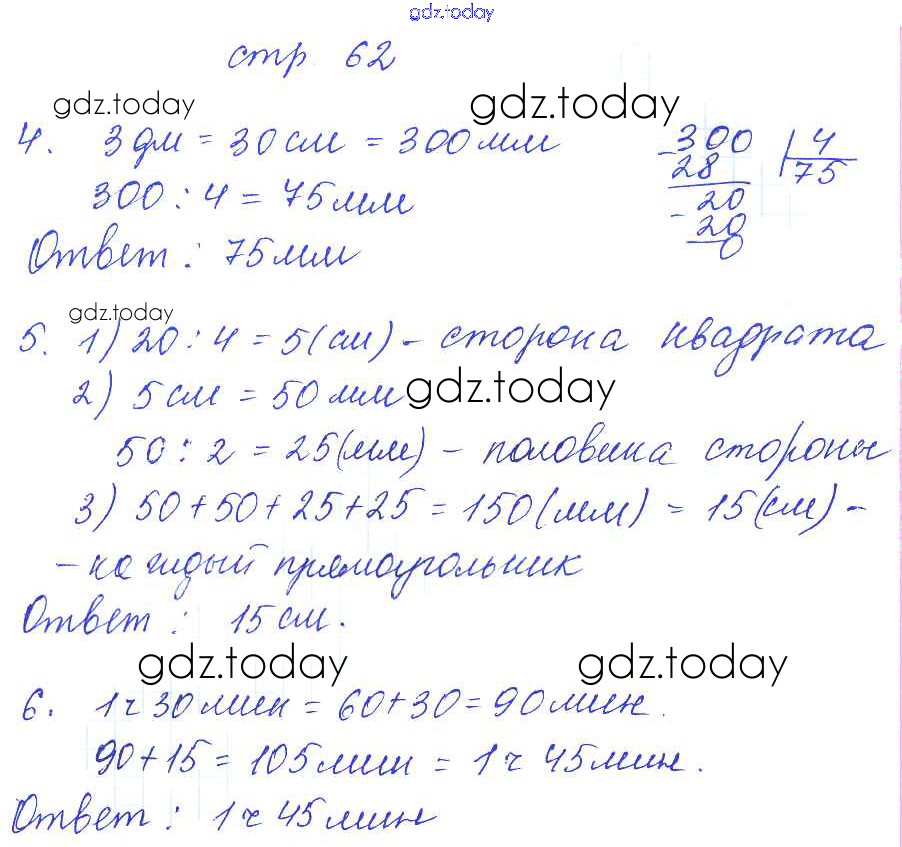 gdz.today
стр 62
gdz.today gdz.today
4. 3 дм = 30 см = 300 мм
300 : 4 = 75 мм
Ответ : 75 мм
300 4
- 28 75
20
- 20
0
gdz.today
5. 1) 20 : 4 = 5 (см) - сторона квадрата
2) 5 см = 50 мм
gdz.today
50 : 2 = 25 (мм) - половина стороны
3) 50 + 50 + 25 + 25 = 150 (мм) = 15 (см) -
- каждый прямоугольник
Ответ : 15 см.
gdz.today gdz.today
6. 1 ч 30 мин = 60 + 30 = 90 мин.
90 + 15 = 105 мин = 1 ч 45 мин.
Ответ : 1 ч 45 мин